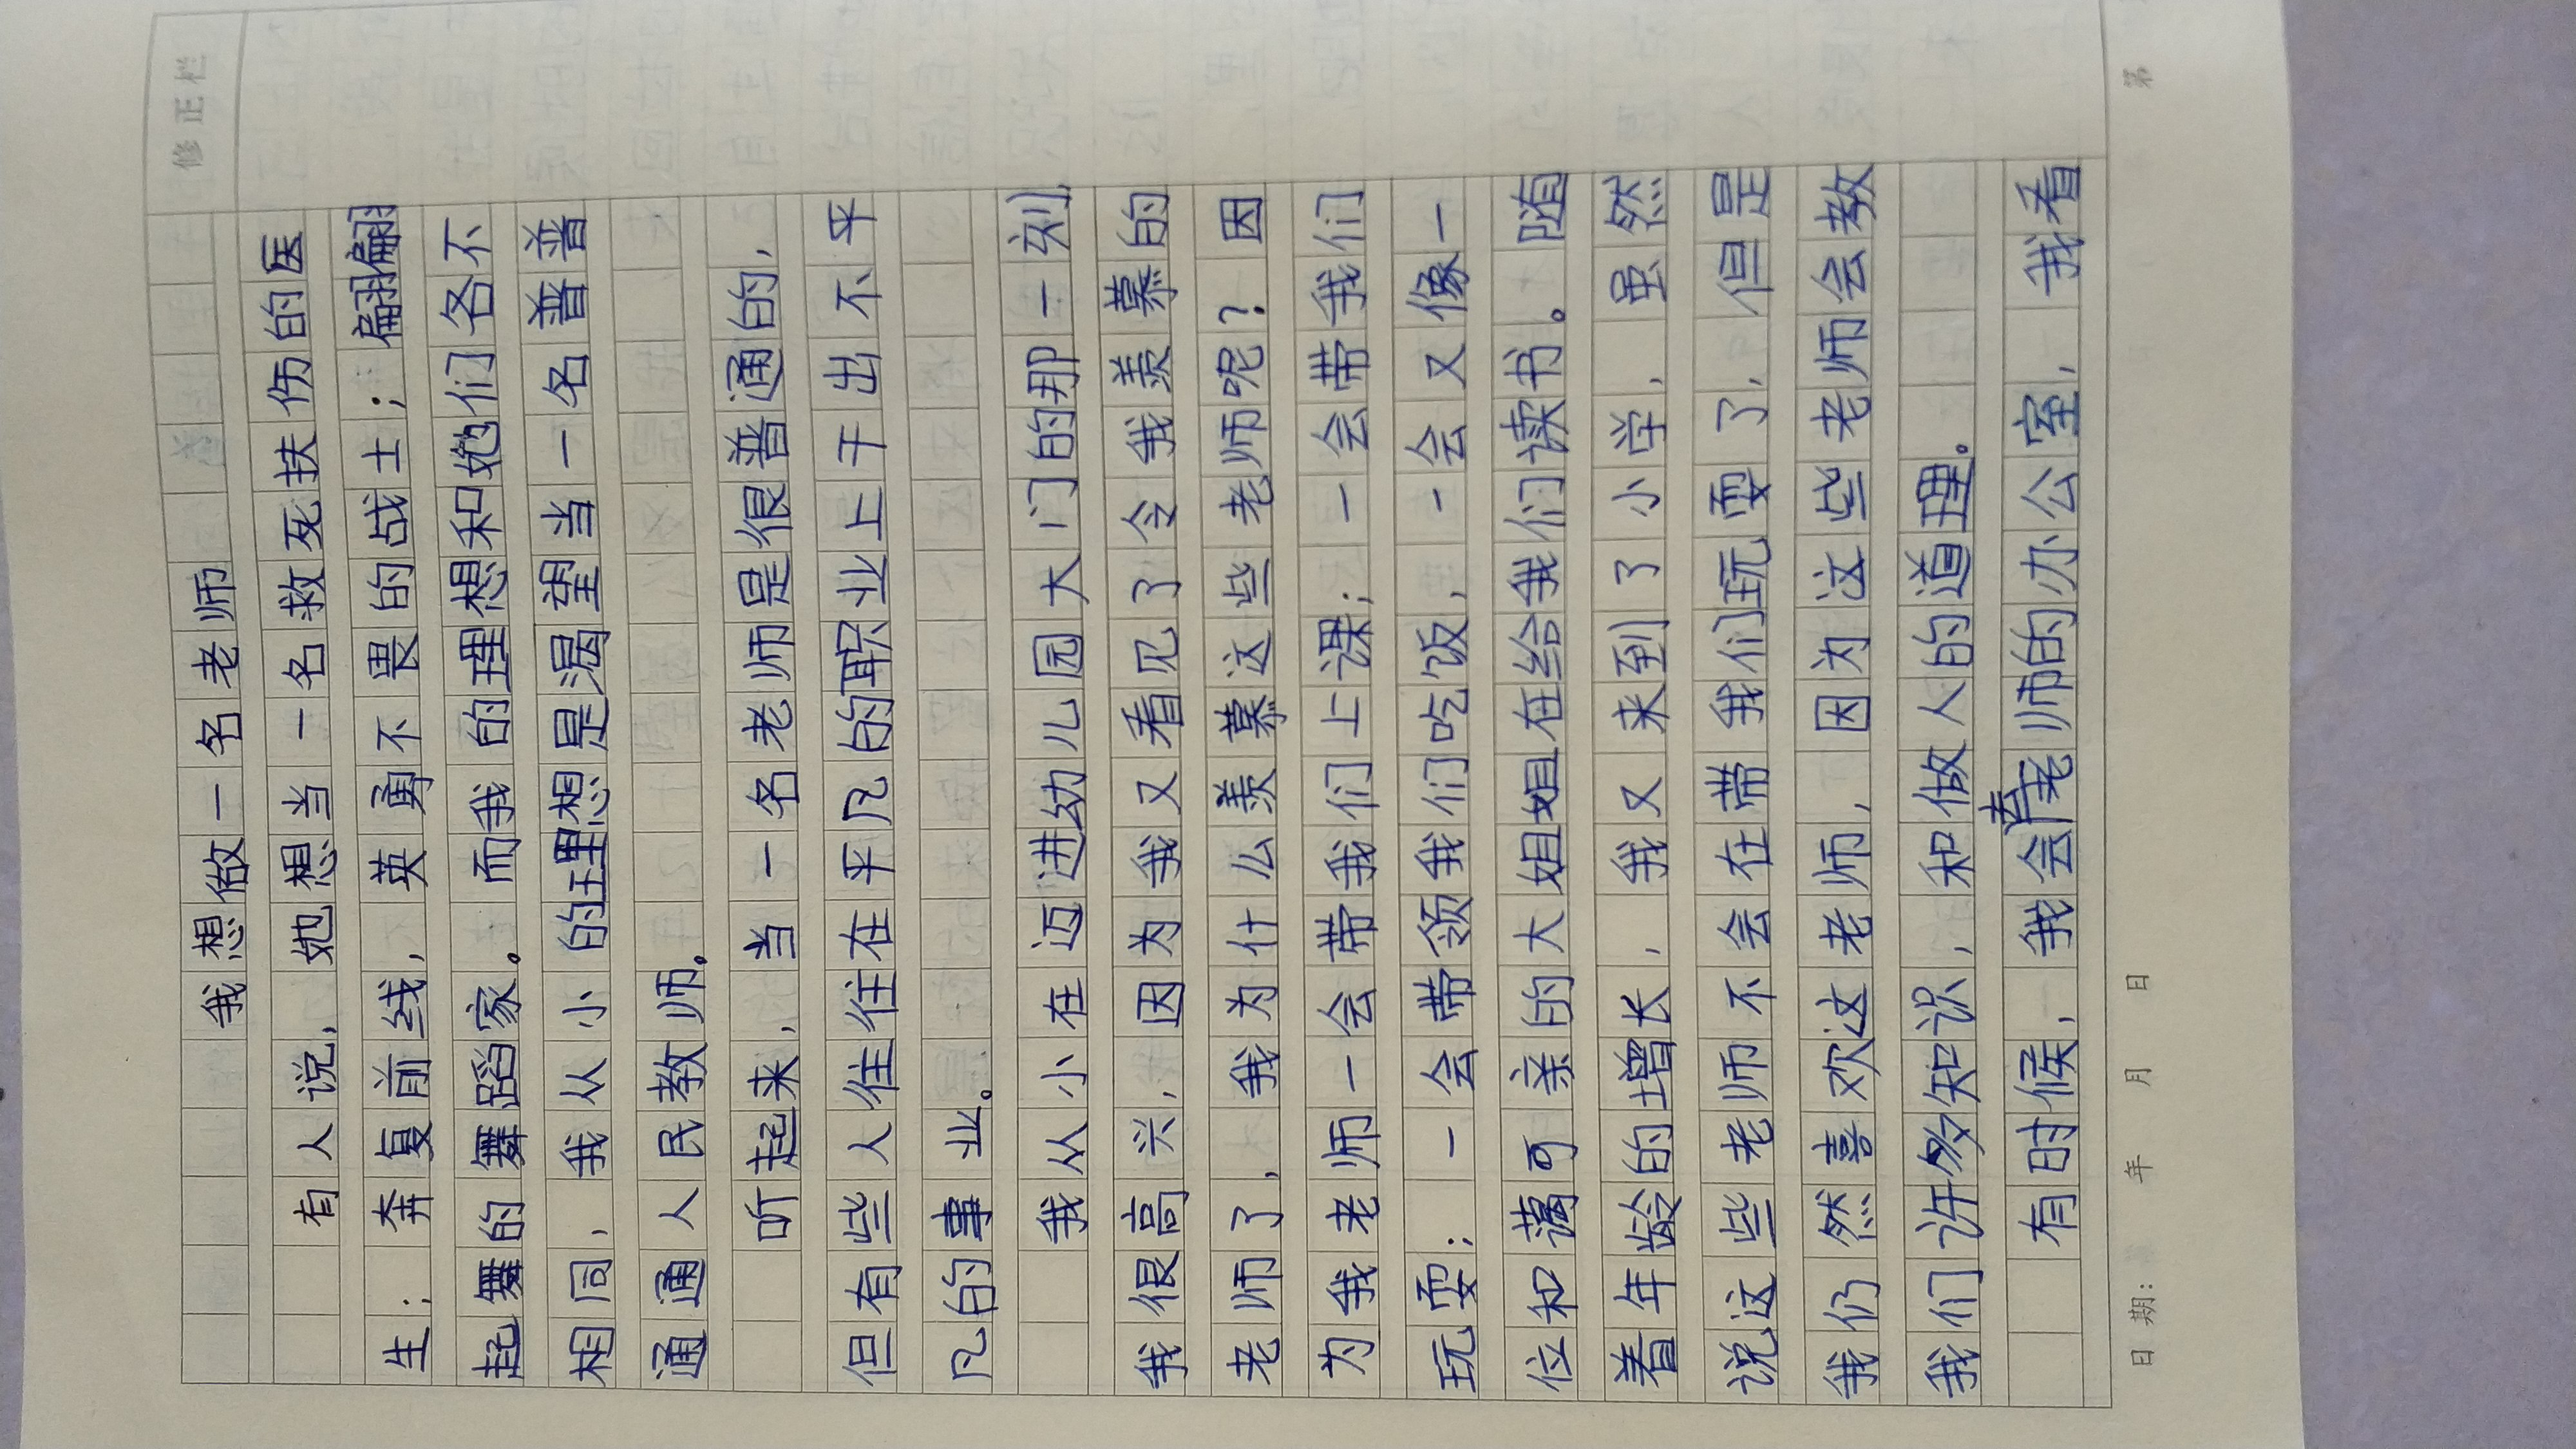 修正栏
我想做一名老师
有人说，她想当一名救死扶伤的医
生；奔复前线，英勇不畏的战士；翩翩
起舞的舞蹈家。而我的理想和她们各不
相同，我从小的理想是渴望当一名普普
通通人民教师。
听起来，当一名老师是很普通的，
但有些人住住在平凡的职业上干出不平
凡的事业。
我从小在迈进幼儿园大门的那一刻，
我很高兴，因为我又看见了令我羡慕的
老师了，我为什么羡慕这些老师呢？因
为我老师一会带我们上课；一会带我们
玩耍；一会带领我们吃饭，一会又像一
位和蔼可亲的大姐姐在给我们读书。随
着年龄的增长，我又来到了小学，虽然
说这些老师不会在带我们玩耍了，但是
我仍然喜欢这老师，因为这些老师会教
我们许多知识，和做人的道理。
有时候，我会去老师的办公室，我看
日期： 年 月 日 第